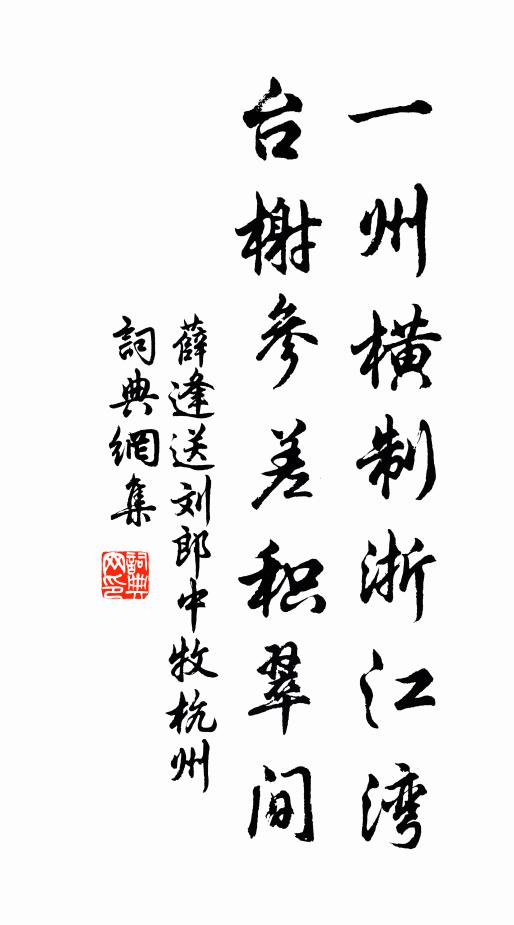 一州横制浙江湾
台榭参差积翠间
薛逢送刘郎中牧杭州
詞典網集
詞典网印